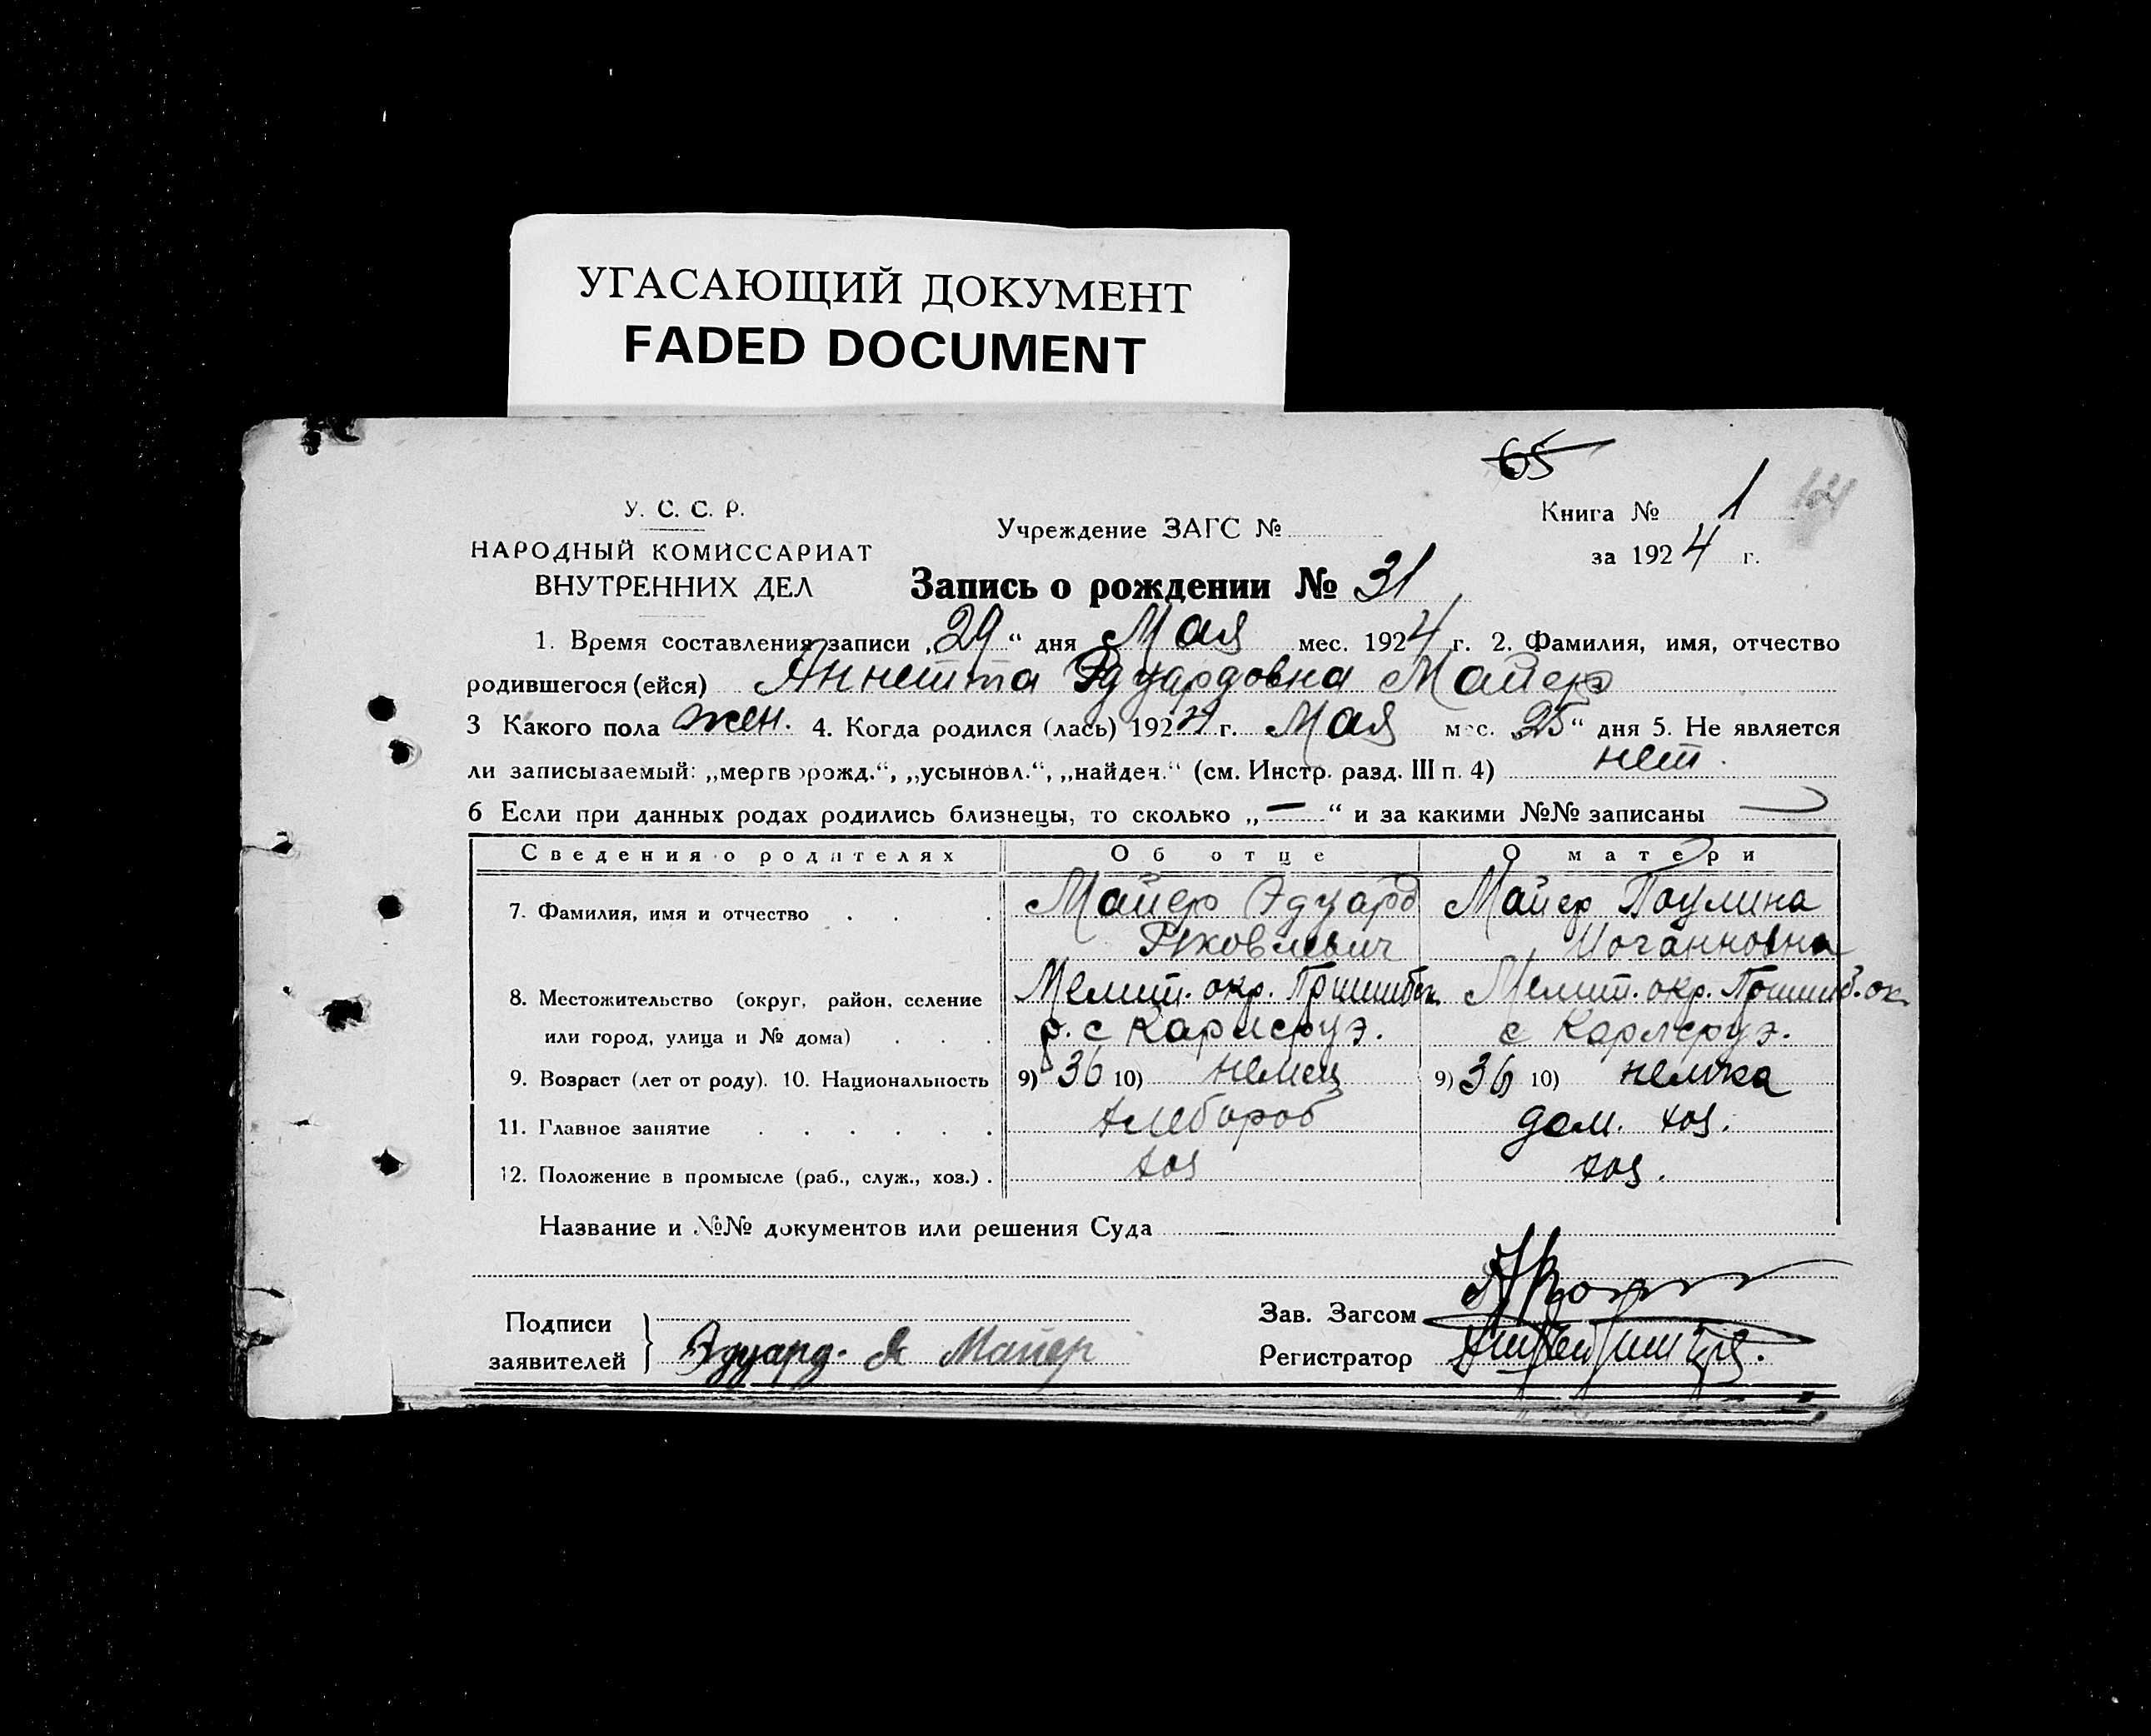 УГАСАЮЩИЙ ДОКУМЕНТ
FADED DOCUMENT
65
У. С. С. Р.
НАРОДНЫЙ КОМИССАРИАТ
ВНУТРЕННИХ ДЕЛ
Учреждение ЗАГС №
Книга № 1
за 1924 г.
Запись о рождении № 31
1. Время составления записи „29“ дня Мая мес. 1924 г. 2. Фамилия, имя, отчество
родившегося (ейся) Аннетта Эдуардовна Майер
3 Какого пола жен. 4. Когда родился (лась) 1924 г. Мая мес. 25“ дня 5. Не является
ли записываемый: „мертворожд.“, „усыновл.“, „найден.“ (см. Инстр. разд. III п. 4) нет.
6 Если при данных родах родились близнецы, то сколько „—“ и за какими №№ записаны
Сведения о родителях Об отце О матери
7. Фамилия, имя и отчество . . . Майер Эдуард Майер Паулина
Яковлевич Иоганновна
8. Местожительство (округ, район, селение Мелит. окр. Пришибск. Мелит. окр. Пришиб. ок.
или город, улица и № дома) . . . р. с Карлсруэ. с Карлсруэ.
9. Возраст (лет от роду). 10. Национальность 9) 36 10) немец 9) 36 10) немка
11. Главное занятие . . . . . . хлебороб дом. хоз.
12. Положение в промысле (раб., служ., хоз.) . хоз хоз.
Название и №№ документов или решения Суда —
Подписи
заявителей } Эдуард. Я Майер
Зав. Загсом
Регистратор